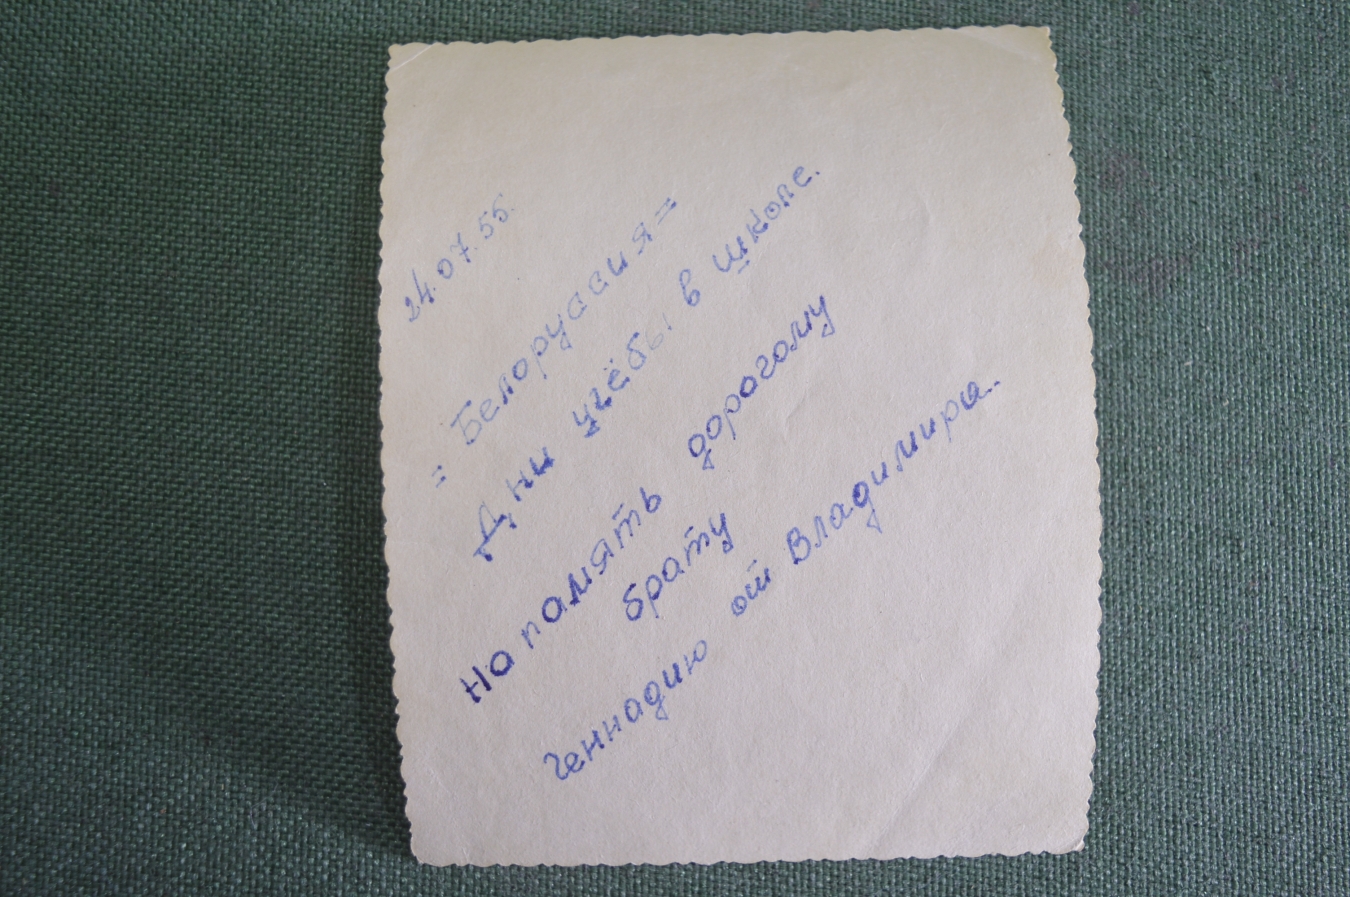 24.07.55.
= Белоруссия =
Дни учёбы в школе.
На память дорогому
брату
Геннадию от Владимира..